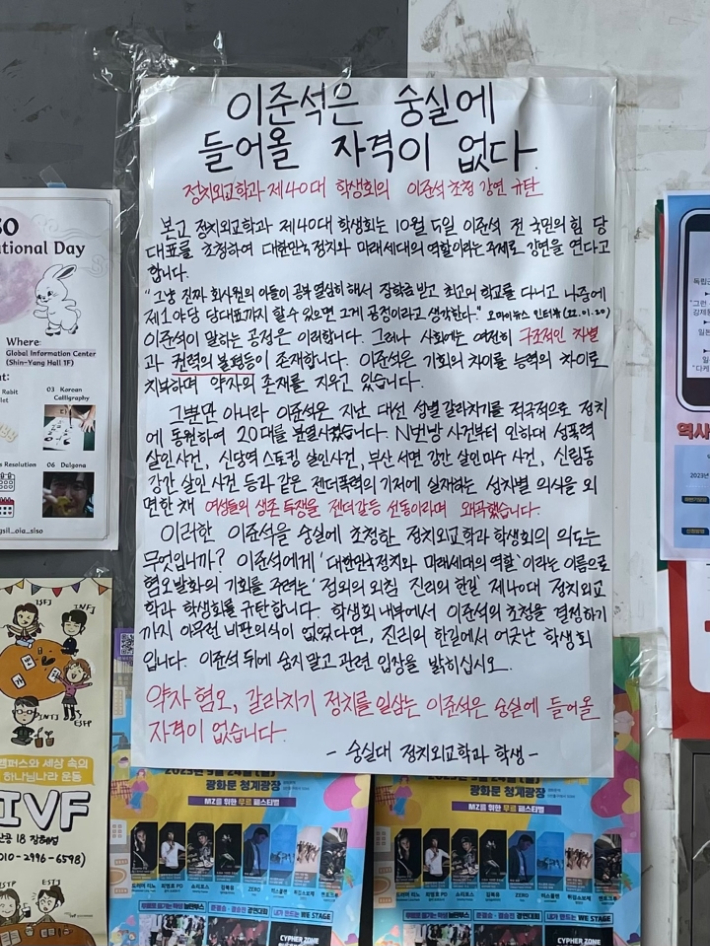 이준석은 숭실에
들어올 자격이 없다.
정치외교학과 제40대 학생회의 이준석 초청 강연 규탄
본교 정치외교학과 제40대 학생회는 10월 5일 이준석 전 국민의힘 당
대표를 초청하여 대한민국정치와 미래세대의 역할이라는 주제로 강연을 연다고
합니다.
"그냥 진짜 회사원의 아들이 공부 열심히 해서 장학금 받고 최고의 학교를 다니고 나중에
제1야당 당대표까지 할 수 있으면 그게 공정이라고 생각한다." 오마이뉴스 인터뷰 (22.01.20)
이준석이 말하는 공정은 이러합니다. 그러나 사회에는 여전히 구조적인 차별
과 권력의 불평등이 존재합니다. 이준석은 기회의 차이를 능력의 차이로
치부하며 약자의 존재를 지우고 있습니다.
그뿐만 아니라 이준석은 지난 대선 성별 갈라치기를 적극적으로 정치
에 동원하여 20대를 분열시켰습니다. N번방 사건부터 인하대 성폭력
살인사건, 신당역 스토킹 살인사건, 부산 서면 강간 살인미수 사건, 신림동
강간 살인 사건 등과 같은 젠더폭력의 기저에 실재하는 성차별 의식을 외
면한 채 여성들의 생존 투쟁을 젠더갈등 선동이라며 왜곡했습니다.
이러한 이준석을 숭실에 초청한 정치외교학과 학생회의 의도는
무엇입니까? 이준석에게 '대한민국정치와 미래세대의 역할'이라는 이름으로
혐오발화의 기회를 주려는 '정외의 외침 진리의 한길' 제40대 정치외교
학과 학생회를 규탄합니다. 학생회 내부에서 이준석의 초청을 결정하기
까지 아무런 비판의식이 없었다면, 진리의 한길에서 어긋난 학생회
입니다. 이준석 뒤에 숨지 말고 관련 입장을 밝히십시오.
약자 혐오, 갈라치기 정치를 일삼는 이준석은 숭실에 들어올
자격이 없습니다.
- 숭실대 정치외교학과 학생 -
ational Day
Where:
Global Information Center
(Shin-Yang Hall 1F)
Rabit
03 Korean
Calligraphy
Resolution
06 Dalgona
gsil_oia_siso
ISFJ
INFJ
ESFP
캠퍼스와 세상 속의
하나님나라 운동
IVF
010-2996-6598)
ESTJ
광화문 청계광장
MZ를 위한 무료 페스티벌
ZERO
WE STAGE
CYPHER ZONE
광화문 청계광장
MZ를 위한 무료 페스티벌
ZERO
WE STAGE
CYPHER ZONE
독립군
"그런
강제동
일본
"다케
역사
2023년